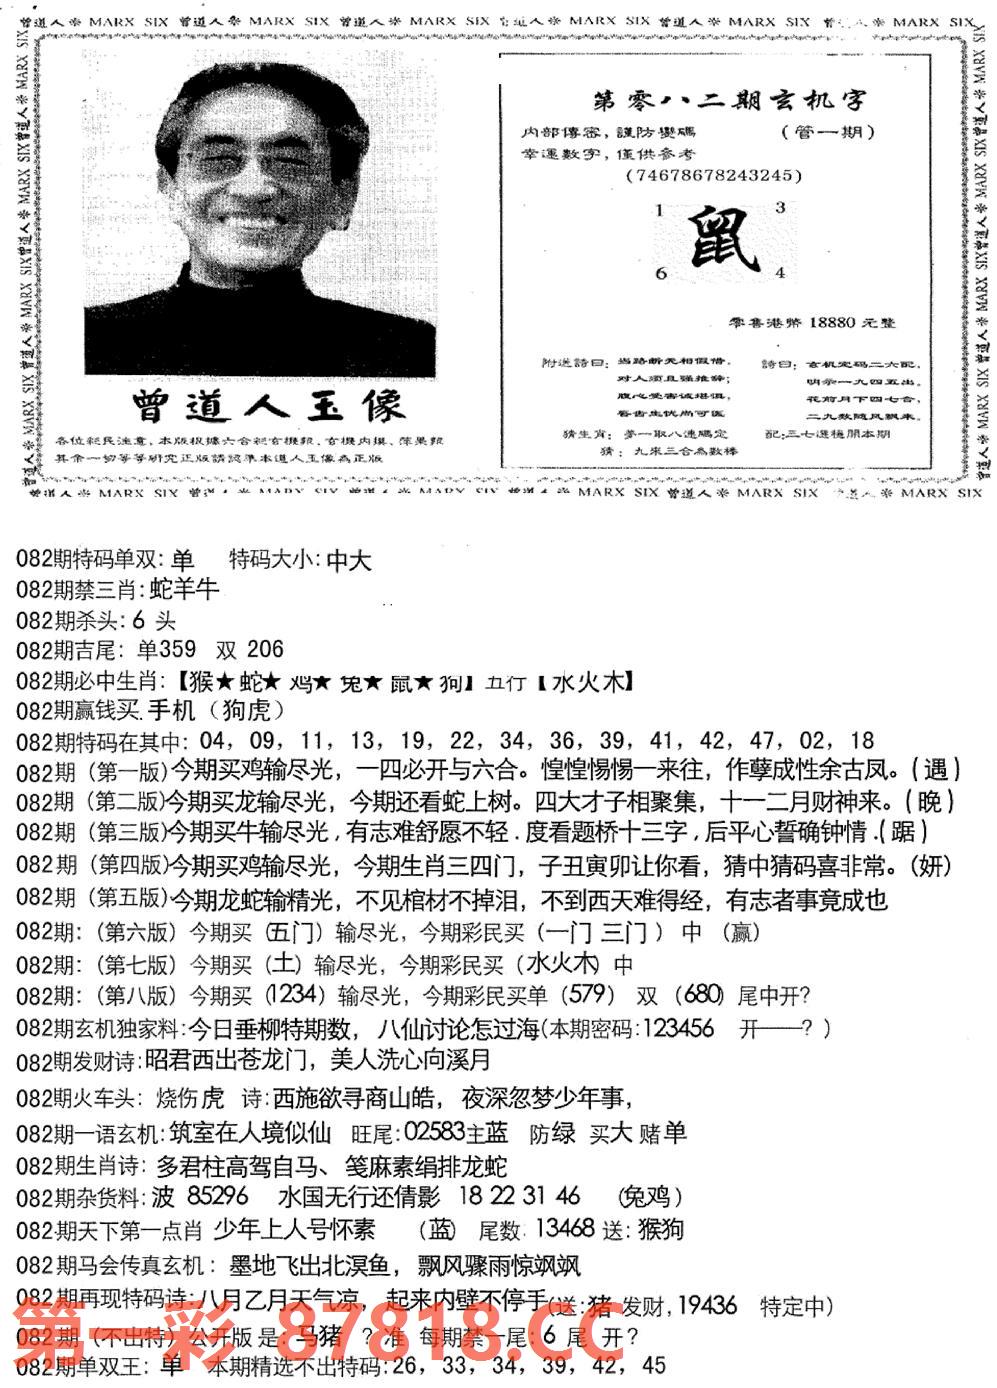 曾道人※ MARX SIX 曾道人※ MARX SIX 曾道人※ MARX SIX 曾道人※ MARX SIX 曾道人※ MARX SIX 曾道人※ MARX SIX
第零八二期玄机字
内部傳密，謹防變碼 （管一期）
幸運數字，僅供參考
(74678678243245)
1 3
鼠
6 4
零售港幣 18880 元整
附送詩曰：当路断无相假借， 詩曰：玄机定码二六配，
对人须且强推辞； 明示一九四五出，
腹心受害诚堪惧， 花前月下四七合，
唇齿生忧尚可医 二九数随风飘来。
猜生肖：夢一取八速碼定 配：三七選種開本期
猜：九來三合為數棒
曾道人玉像
各位彩民注意，本版根據六合彩玄機報、玄機内摸、蘋果報
其余一切等等研究正版請認準本道人玉像為正版
曾道人※ MARX SIX 曾道人※ MARX SIX 曾道人※ MARX SIX 曾道人※ MARX SIX 曾道人※ MARX SIX 曾道人※ MARX SIX
082期特码单双: 单 特码大小: 中大
082期禁三肖: 蛇羊牛
082期杀头: 6 头
082期吉尾: 单359 双 206
082期必中生肖:【猴★蛇★鸡★兔★鼠★狗】五行【水火木】
082期赢钱买. 手机（狗虎）
082期特码在其中: 04, 09, 11, 13, 19, 22, 34, 36, 39, 41, 42, 47, 02, 18
082期（第一版)今期买鸡输尽光，一四必开与六合。惶惶惕惕一来往，作孽成性余古凤。(遇)
082期（第二版)今期买龙输尽光，今期还看蛇上树。四大才子相聚集，十一二月财神来。(晚)
082期（第三版)今期买牛输尽光,有志难舒愿不轻.度看题桥十三字,后平心誓确钟情.(踞)
082期（第四版)今期买鸡输尽光，今期生肖三四门，子丑寅卯让你看，猜中猜码喜非常。(妍)
082期（第五版)今期龙蛇输精光，不见棺材不掉泪，不到西天难得经，有志者事竟成也
082期:（第六版）今期买（五门）输尽光，今期彩民买（一门 三门）中 （赢）
082期:（第七版）今期买（土）输尽光，今期彩民买（水火木）中
082期:（第八版）今期买（1234）输尽光，今期彩民买单（579） 双（680）尾中开?
082期玄机独家料:今日垂柳特期数，八仙讨论怎过海(本期密码:123456 开——? )
082期发财诗:昭君西出苍龙门，美人洗心向溪月
082期火车头: 烧伤虎 诗:西施欲寻商山皓，夜深忽梦少年事，
082期一语玄机:筑室在人境似仙 旺尾:02583主蓝 防绿 买大 赌单
082期生肖诗: 多君柱高驾自马、笺麻素绢排龙蛇
082期杂货料:波 85296 水国无行还倩影 18 22 31 46 （兔鸡）
082期天下第一点肖 少年上人号怀素 （蓝） 尾数: 13468 送: 猴狗
082期马会传真玄机: 墨地飞出北溟鱼，飘风骤雨惊飒飒
082期再现特码诗:八月乙月天气凉，起来内壁不停手(送:猪 发财,19436 特定中)
082期（不出特）公开版 是: 马猪 ? 准 每期禁一尾: 6 尾 开?
082期单双王: 单 本期精选不出特码:26, 33, 34, 39, 42, 45
第一彩 87818.CC